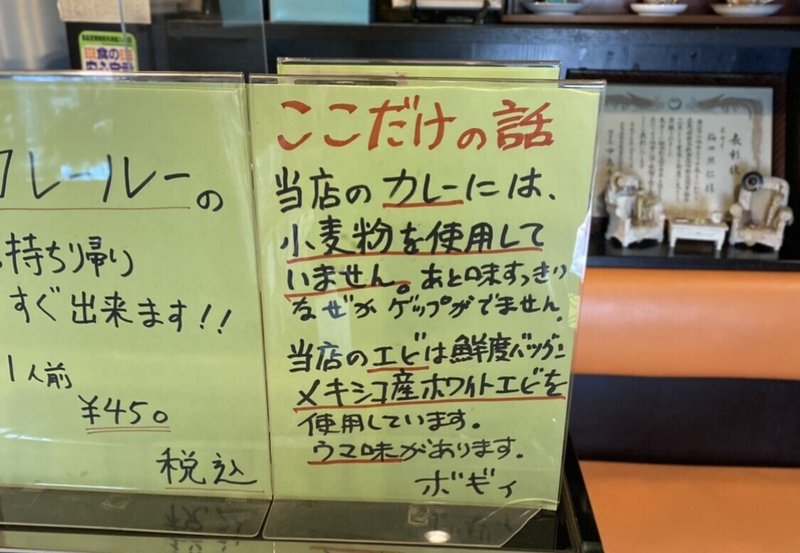 カレールーの
お持ち帰り
すぐ出来ます!!
1人前
¥450
税込
ここだけの話
当店のカレーには、
小麦粉を使用して
いません。あと味すっきり
なぜかゲップがでません。
当店のエビは鮮度バツグン
メキシコ産ホワイトエビを
使用しています。
ウマ味があります。
ボギィ
表彰状